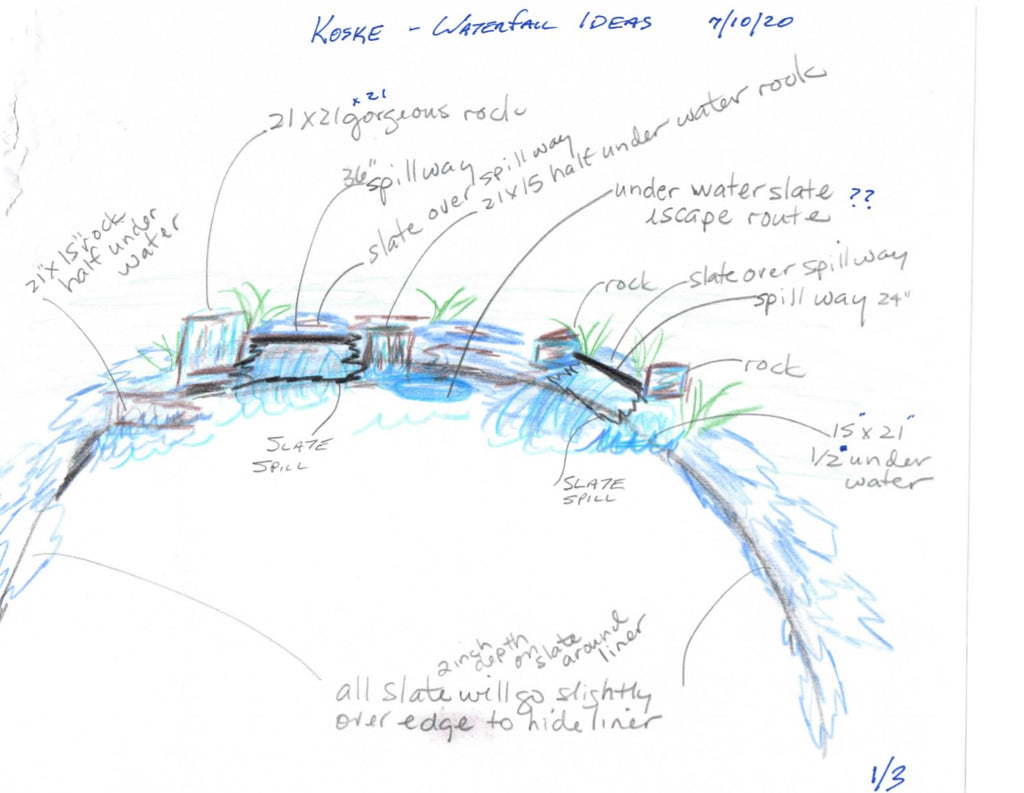 KOSKE - WATERFALL IDEAS 7/10/20
x 21
21 x 21 gorgeous rock
36" spillway
slate over spillway
21 x 15 half under water rook
under water slate ??
escape route
21" x 15" rock
half under
water
rock
slate over spillway
spill way 24"
rock
15" x 21"
1/2" under
water
SLATE
SPILL
SLATE
SPILL
2 inch
depth
on slate
around
liner
all slate will go slightly
over edge to hide liner
1/3